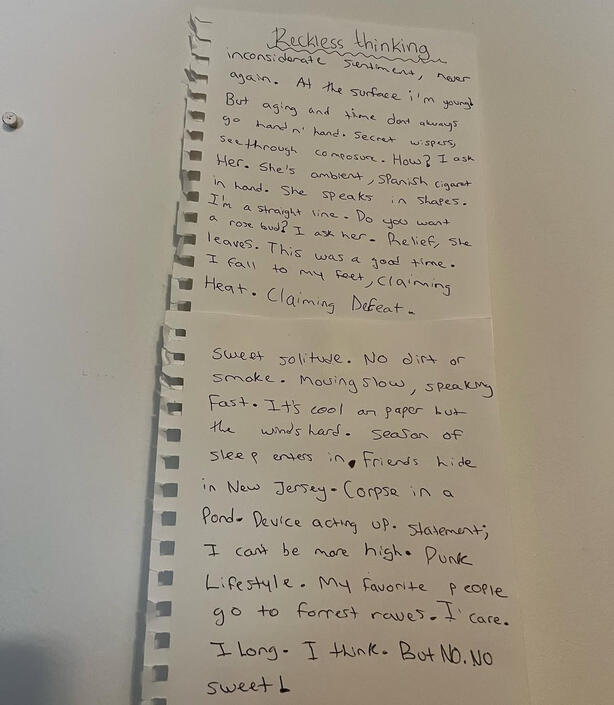 Reckless thinking
inconsiderate sentiment, never
again. At the surface i'm young
But aging and time dont always
go hand n' hand. Secret wispers,
see through composure. How? I ask
Her. She's ambient, Spanish cigaret
in hand. She speaks in shapes.
I'm a straight line. Do you want
a rose bud? I ask her. Relief, she
leaves. This was a good time.
I fall to my feet, Claiming
Heat. Claiming Defeat.
sweet solitude. No dirt or
smoke. Moving slow, speaking
Fast. It's cool on paper but
the winds hard. season of
sleep enters in. Friends hide
in New Jersey. Corpse in a
Pond. Device acting up. Statement;
I cant be more high. Punk
Lifestyle. My favorite people
go to forrest raves. I care.
I Long. I think. But NO. NO
sweet